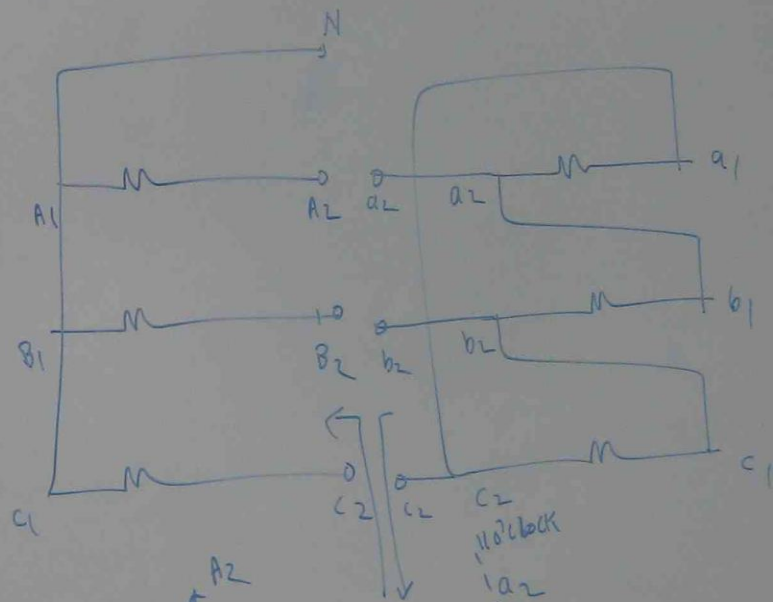 N
A1
A2
a2
a2
a1
B1
B2
b2
b2
b1
C1
C2
C2
C2
C1
11o'clock
a2
A2